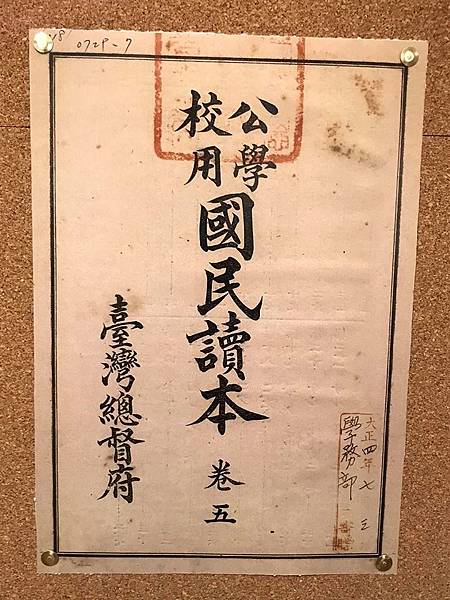 0729-7
公學
校用
國民讀本 卷五
臺灣總督府
大正四年七
學務部